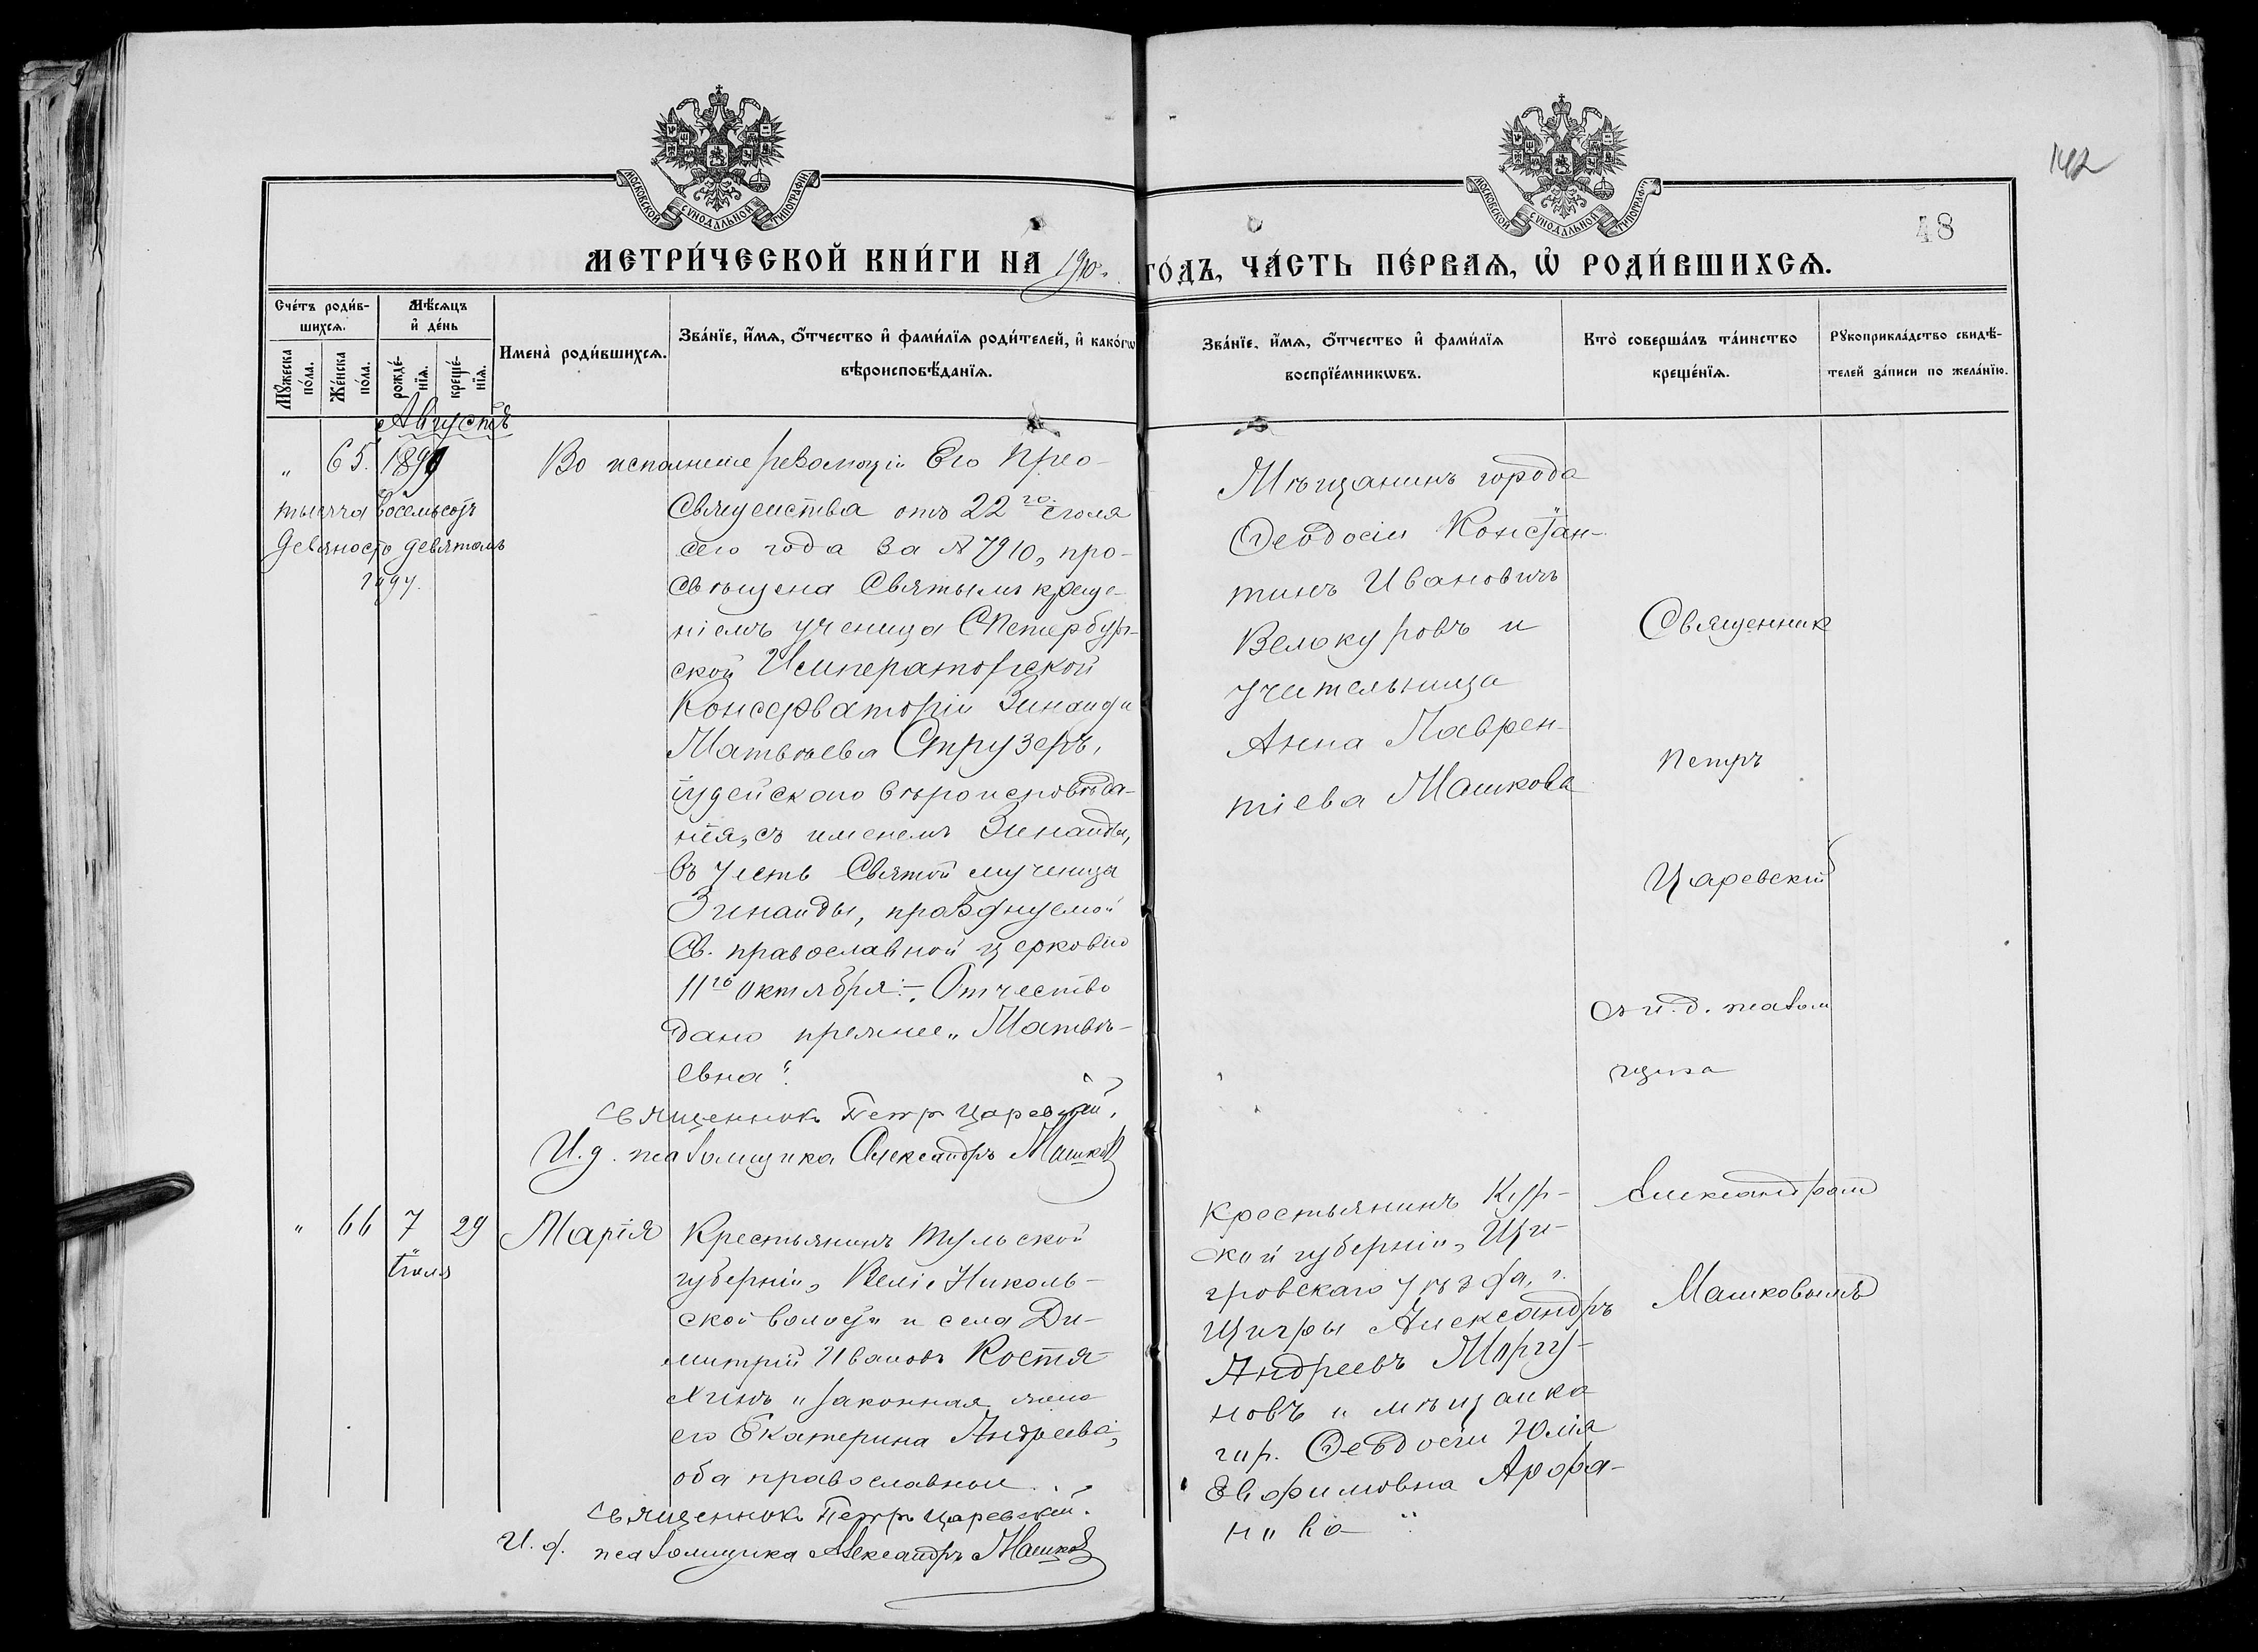 142
48
МОСКОВСКОЙ СѴНОДАЛЬНОЙ ТИПОГРАФІИ
МОСКОВСКОЙ СѴНОДАЛЬНОЙ ТИПОГРАФІИ
МЕТРИ́ЧЕСКОЙ КНИ́ГИ НА 1910. ГО́ДЪ, ЧА́СТЬ ПЕ́РВАѦ, Ѽ РОДИ́ВШИХСѦ.
Сче́тъ роди́в-
шихсѧ.
Мѣ́сѧцъ
и҆ де́нь
Мꙋ́жеска по́ла.
Же́нска по́ла.
рожде́-
нїѧ.
креще́-
нїѧ.
Имена̀ роди́вшихсѧ.
Зва́нїе, и҆́мѧ, ѻ҆́тчество и҆ фами́лїѧ роди́телей, и҆ како́гѡ
вѣроисповѣ́данїѧ.
Зва́нїе, и҆́мѧ, ѻ҆́тчество и҆ фами́лїѧ
воспрїе́мникѡвъ.
Кто̀ соверша́лъ та́инство
креще́нїѧ.
Рꙋкоприкла́дство свидѣ́-
телей за́писи по жела́нїю.
Августѣ
„ 65. 1899
тысяча восемьсотъ
девяносто девятомъ
году.
Во исполненіе резолюціи Его Прео-
Священства отъ 22го Іюля
сего года за № 7910, про-
свѣщена Святымъ креще-
ніемъ ученица СПетербург-
ской Императорской
Консерваторіи Зинаида
Матвѣева Струзеръ,
іудейскаго вѣроисповѣда-
нія, съ именемъ Зинаиды,
въ честь Святой мученицы
Зинаиды, празднуемой
Св. православной церковью
11го Октября. Отчество
дано прежнее „Матвѣ-
евна“.
Священникъ Петръ Царевскій.
И. д. псаломщика Александръ Машковъ
Мѣщанинъ города
Ѳеодосіи Констан-
тинъ Ивановичъ
Белокуровъ и
учительница
Анна Лаврен-
тіева Машкова
Священник
Петръ
Царевскій
съ и. д. псалом
щика
Александромъ
Машковымъ
„ 66 7 29 Марія
Іюля
Крестьянинъ Тульской
губерніи, Николь-
ской волости и села Ди-
митрій Ивановъ Костя-
хинъ и законная жена
его Екатерина Андреева,
оба православные.
Священникъ Петръ Царевскій.
И. д. псаломщика Александръ Машковъ
Крестьянинъ Кур-
ской губерніи, Щи-
гровскаго уѣзда, г.
Щигры Александръ
Андреевъ Моргу-
новъ и мѣщанка
гор. Ѳеодосіи Юлія
Евфимовна Арофа-
нова